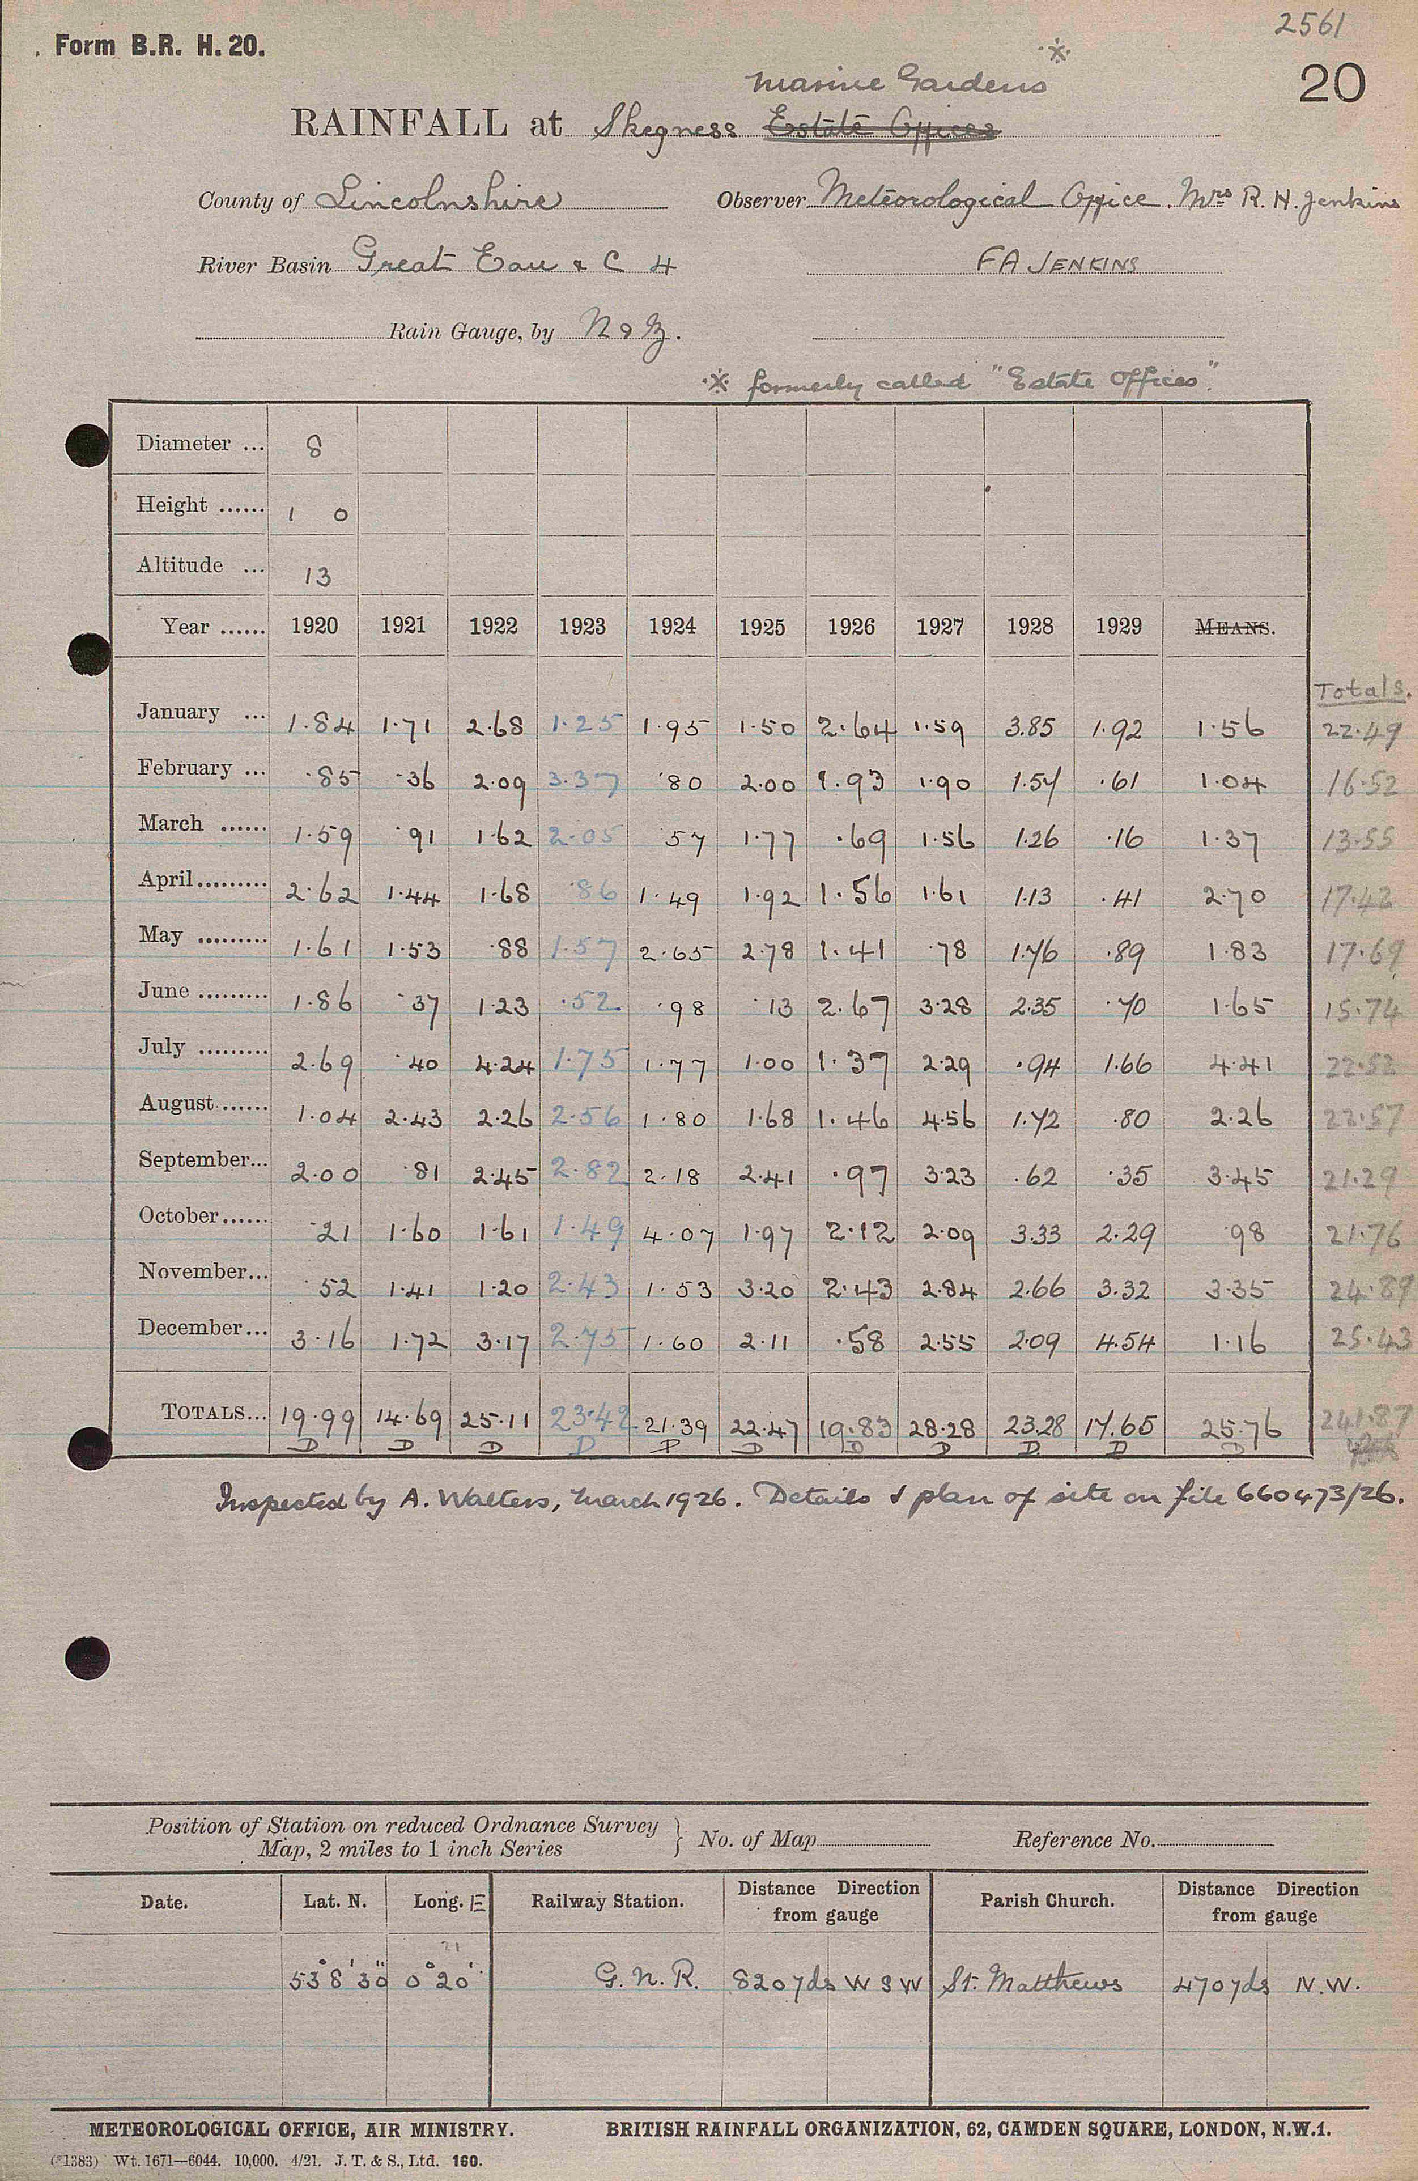 2561
Form B.R. H. 20.
20
Marine Gardens ※
RAINFALL at Skegness Estate Offices
County of Lincolnshire Observer Meteorological Office. Mrs R. H. Jenkins
River Basin Great Eau & C 4 FA JENKINS
Rain Gauge, by N & Z.
※ formerly called "Estate Offices".
Diameter ... 8
Height ...... 1 0
Altitude ... 13
Year ...... 1920 1921 1922 1923 1924 1925 1926 1927 1928 1929 MEANS.
Totals.
January ... 1.84 1.71 2.68 1.25 1.95 1.50 2.64 1.59 3.85 1.92 1.56 22.49
February ... .85 .36 2.09 3.37 .80 2.00 1.93 1.90 1.54 .61 1.04 16.52
March ...... 1.59 .91 1.62 2.05 .57 1.77 .69 1.56 1.26 .16 1.37 13.55
April......... 2.62 1.44 1.68 .86 1.49 1.92 1.56 1.61 1.13 .41 2.70 17.42
May ......... 1.61 1.53 .88 1.57 2.65 2.78 1.41 .78 1.76 .89 1.83 17.69
June ......... 1.86 .37 1.23 .52 .98 .13 2.67 3.28 2.35 .70 1.65 15.74
July ......... 2.69 .40 4.24 1.75 1.77 1.00 1.37 2.29 .94 1.66 4.41 22.52
August....... 1.04 2.43 2.26 2.56 1.80 1.68 1.46 4.56 1.72 .80 2.26 22.57
September... 2.00 .81 2.45 2.82 2.18 2.41 .97 3.23 .62 .35 3.45 21.29
October...... .21 1.60 1.61 1.49 4.07 1.97 2.12 2.09 3.33 2.29 .98 21.76
November... .52 1.41 1.20 2.43 1.53 3.20 2.43 2.84 2.66 3.32 3.35 24.89
December... 3.16 1.72 3.17 2.75 1.60 2.11 .58 2.55 2.09 4.54 1.16 25.43
TOTALS... 19.99 14.69 25.11 23.42 21.39 22.47 19.83 28.28 23.28 17.65 25.76 241.87
D D D D P D D D D D D
Inspected by A. Walters, March 1926. Details & plan of site on file 660473/26.
Position of Station on reduced Ordnance Survey
Map, 2 miles to 1 inch Series } No. of Map Reference No.
Date. Lat. N. Long. E Railway Station. Distance Direction from gauge Parish Church. Distance Direction from gauge
21
53° 8' 30" 0° 20' G. N. R. 820 yds W S W St. Matthews 470 yds N.W.
METEOROLOGICAL OFFICE, AIR MINISTRY. BRITISH RAINFALL ORGANIZATION, 62, CAMDEN SQUARE, LONDON, N.W.1.
(*1383) Wt. 1671—6044. 10,000. 4/21. J. T. & S., Ltd. 160.